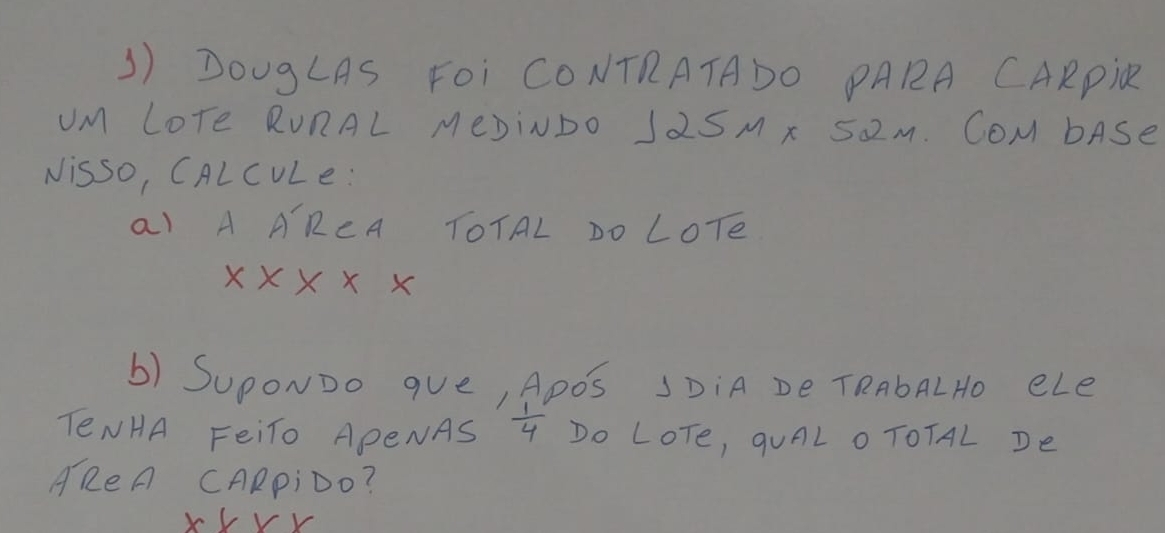 1) DOUGLAS FOI CONTRATADO PARA CARPIR
UM LOTE RURAL MEDINDO 125M x 52M. COM BASE
NISSO, CALCULE:
a) A ÁREA TOTAL DO LOTE.
x x x x x
b) SUPONDO QUE, APÓS 1 DIA DE TRABALHO ELE
TENHA FEITO APENAS 1/4 DO LOTE, QUAL O TOTAL DE
ÁREA CARPIDO?
x x x x